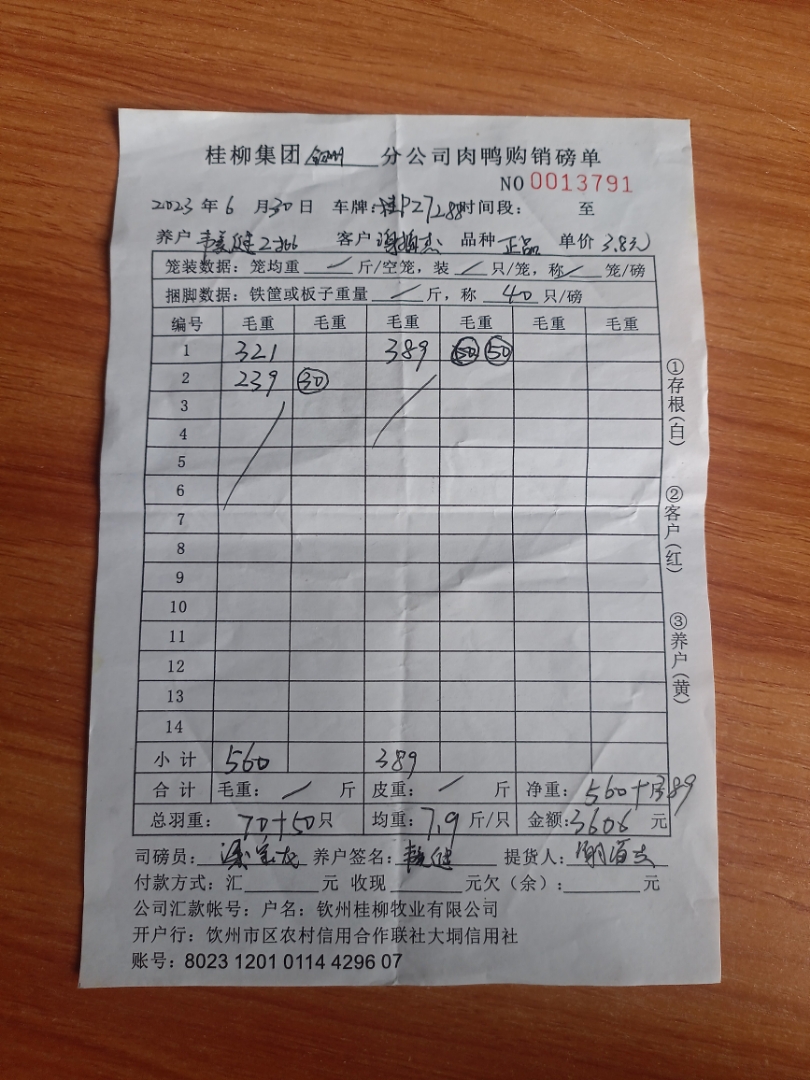 桂柳集团 钦州 分公司肉鸭购销磅单
NO 0013791
2023 年 6 月 30 日 车牌:桂PZ7288 时间段: 至
养户 客户 品种 正品 单价 3.8元
笼装数据:笼均重 / 斤/空笼,装 / 只/笼,称 / 笼/磅
捆脚数据:铁筐或板子重量 / 斤,称 40 只/磅
编号 毛重 毛重 毛重 毛重 毛重 毛重
1 321 389 50 50
2 239 30
3
4
5
6
7
8
9
10
11
12
13
14
小计 560 389
合计 毛重: / 斤 皮重: / 斤 净重: 560+389
总羽重: 70+50 只 均重: 7.9 斤/只 金额:3606 元
司磅员: 养户签名: 提货人:
付款方式:汇 元 收现 元欠(余): 元
公司汇款帐号:户名:钦州桂柳牧业有限公司
开户行:饮州市区农村信用合作联社大垌信用社
账号:8023 1201 0114 4296 07
①存根(白)
②客户(红)
③养户(黄)